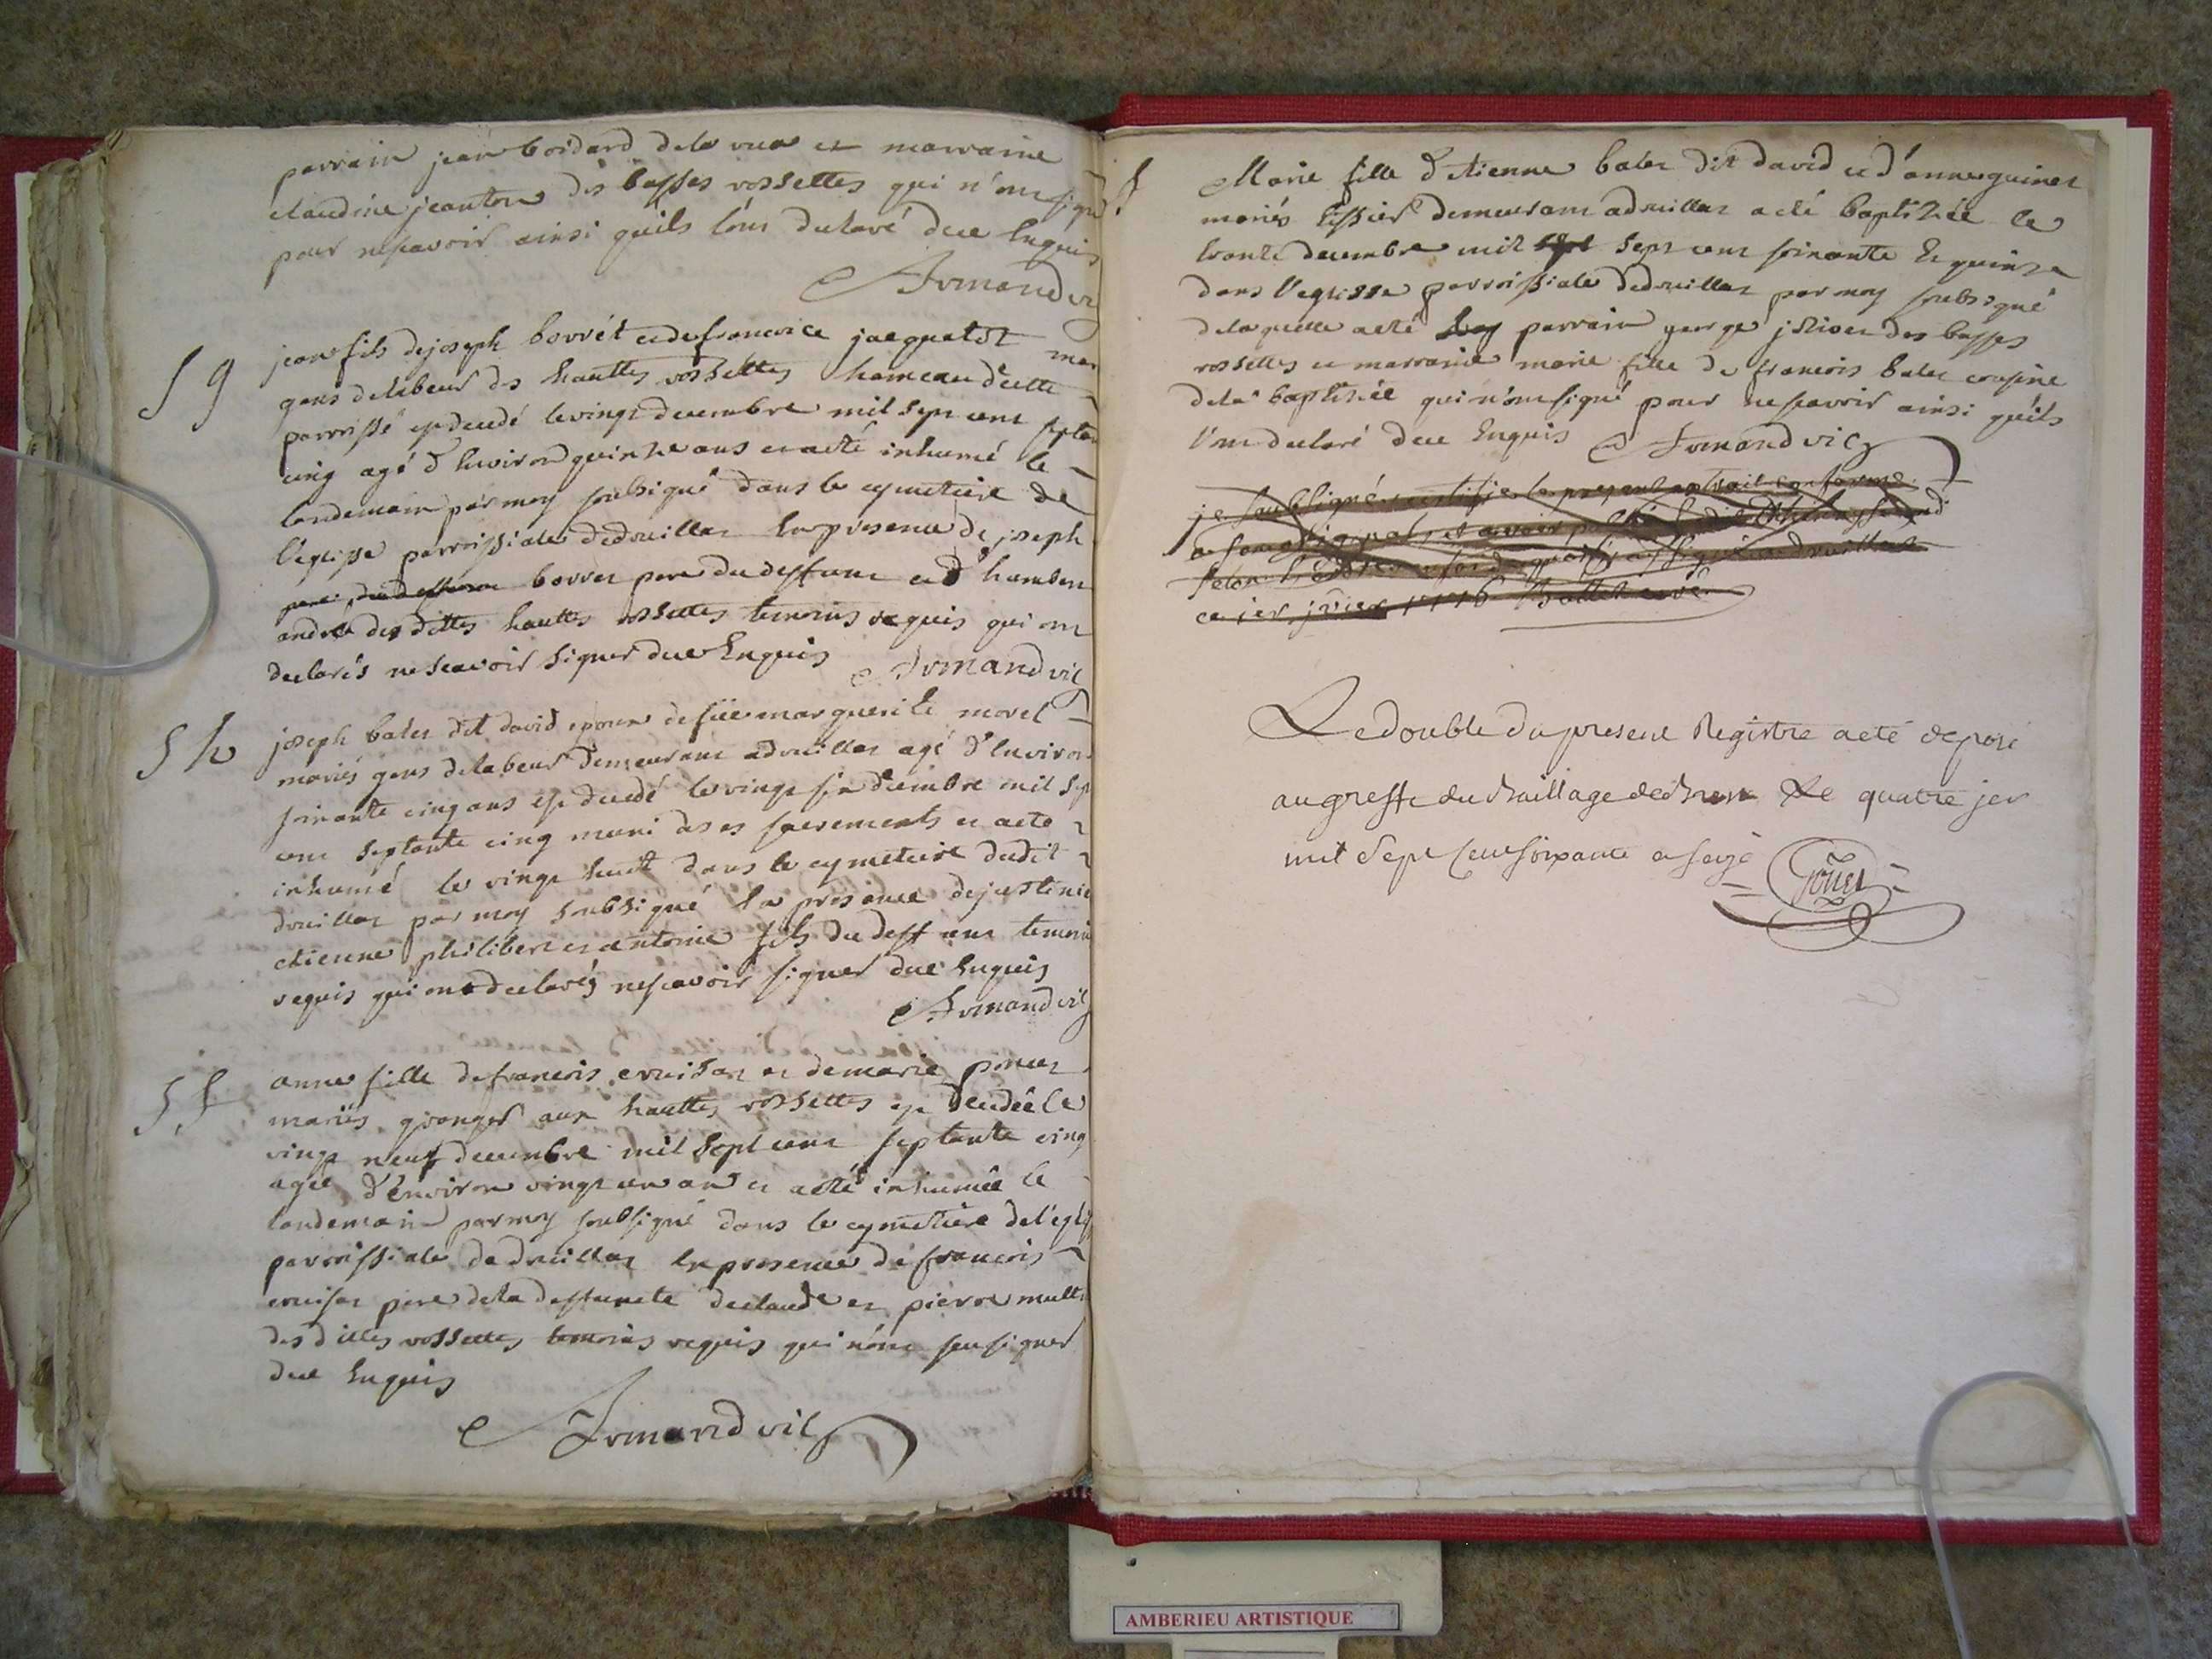 parrain jean boidard dela rua et marraine
claudine jeanton des basses vossettes qui n'ont signé
pour nescavoir ainsi quils l'ont declaré due Enquis
Armand vic
59
jean fils dejoseph borrét et de francoise jacquetot
gens delabeur des hauttes vossettes hameau decette
parroisse est decedé levingt decembre mil sept cent
cinq agé d'Environ quinze ans et a eté inhumé le
landemain par moy soubsigné dans le cymetiere de
l'eglise parroissiale dedruillat En presence de joseph
pere du deffunt borret pere du deffunt et d'humbert
andré des dittes hauttes vossettes temoins requis qui ont
declarés ne scavoir signer due Enquis Armand vic
5h
joseph balet dit david epoux de füe marguerite morel
mariés gens delabeur demeurant adruillat agé d'Environ
soixante cinq ans est decedé levingt six decembre mil sept
cent septante cinq muni de ses sacrements et a eté
inhumé le vingt huit dans le cymetiere dudit
druillat par moy soubsigné En presence de
etienne philibert et antoine fils du deffunt temoins
requis qui ont declarés nescavoir signer due Enquis
Armand vic
55
anne fille defrancois cruisat et demarie poncet
mariés granger aux hauttes vossettes est decedée le
vingt neuf decembre mil sept cent septante cinq
agée d'environ vingt un an et a eté inhumée le
landemain par moy soubsigné dans le cymetiere del'eglise
parroissiale de druillat En presence de francois
cruisat pere dela deffuncte declaude et pierre
des dittes vossettes temoins requis qui n'ont sçu signer
due Enquis
Armand vic
Marie fille d'Etienne balet dit david et d'anne guinet
mariés tissier demeurant adruillat a eté baptizée le
trante decembre mil sept sept cent soixante Et quinze
dans l'eglisse parroissiale dedruillat par moy soubsigné
delaquelle a eté parrain george des basses
vossettes et marraine marie fille de francois balet cousine
dela baptisée qui n'ont signé pour nescavoir ainsi quils
l'ont declaré due Enquis Armand vic
je soubsigné certifie le present extrait conforme
a son original et avoir publié
selon
ce 1er jvier 1776 Ballet curé
Le double du present Registre a eté deposé
au greffe du Baillage de Bresse Le quatre jer
mil Sept Cent soixante et seize